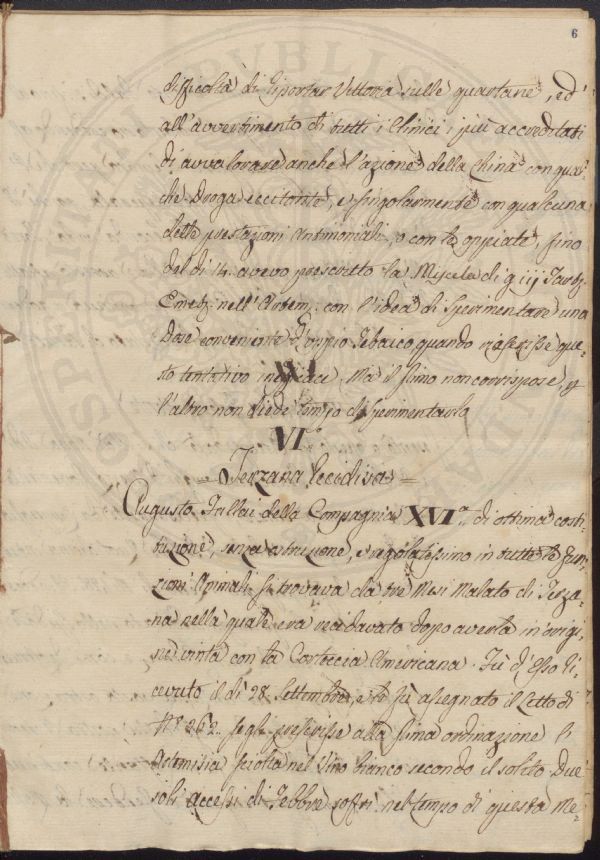 6
difficoltà di riportar Vittoria sulle quartane, ed
all'avvertimento di tutti i Clinici i più accreditati
di avvalorare anche l'azione della China con qual-
che Droga eccitante, e singolarmente con qualcuna
delle prestazioni Antimoniali, o con le oppiate, fino
del dì 14. avevo prescritto la Miscela di g iij Tart:
Emet: nell'Artem: con l'idea di sperimentare una
Dose conveniente d'oppio Tebaico quando riescisse que-
sto tentativo inefficace. Ma il primo non corrispose, e
l'altro non diede tempo di sperimentarlo
VI°
Terzana Recidiva =
Augusto Fallai della Compagnia XVI.a di ottima costi-
tuzione, senza ostruzione, e regolatissimo in tutte le Fun-
zioni Animali si trovava da tre Mesi Malato di Terza-
na nella quale era recidivato dopo averla in origi-
ne vinta con la Corteccia Americana. Fù d'Esso ri-
cevuto il dì 28. Settembre, e le fù assegnato il Letto di
N° 262. se gli prescrisse alla prima ordinazione l'
Artemisia sciolta nel Vino bianco secondo il solito Due
soli accessi di Febbre soffrì nel tempo di questa Me=